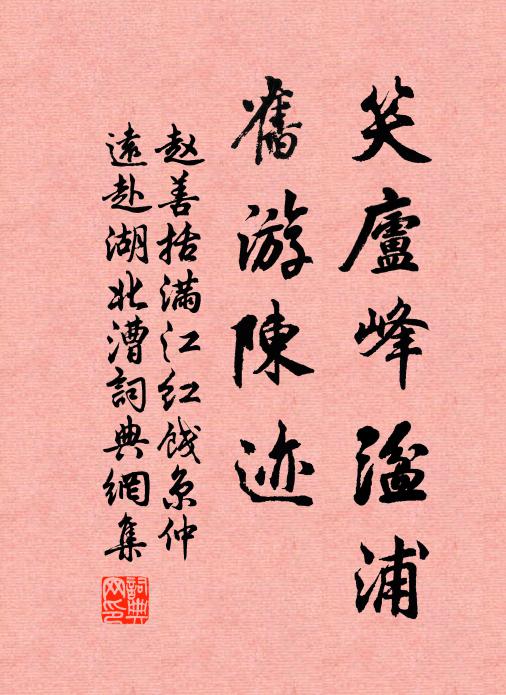 笑廬峰湓浦
舊游陳迹
赵善括满江红餞京仲
遠赴湖北漕詞典網集